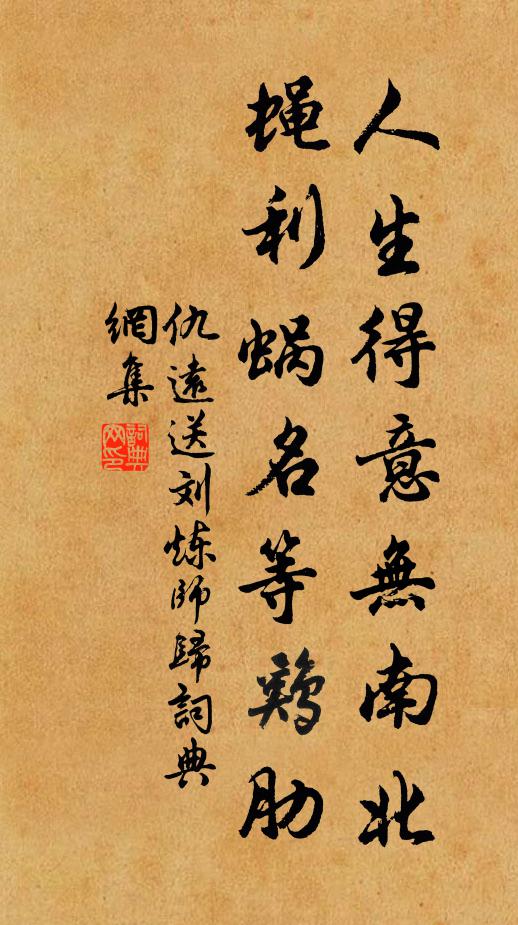 人生得意無南北
蝇利蜗名等鷄肋
仇遠送刘炼师歸詞典
網集
詞典
网印